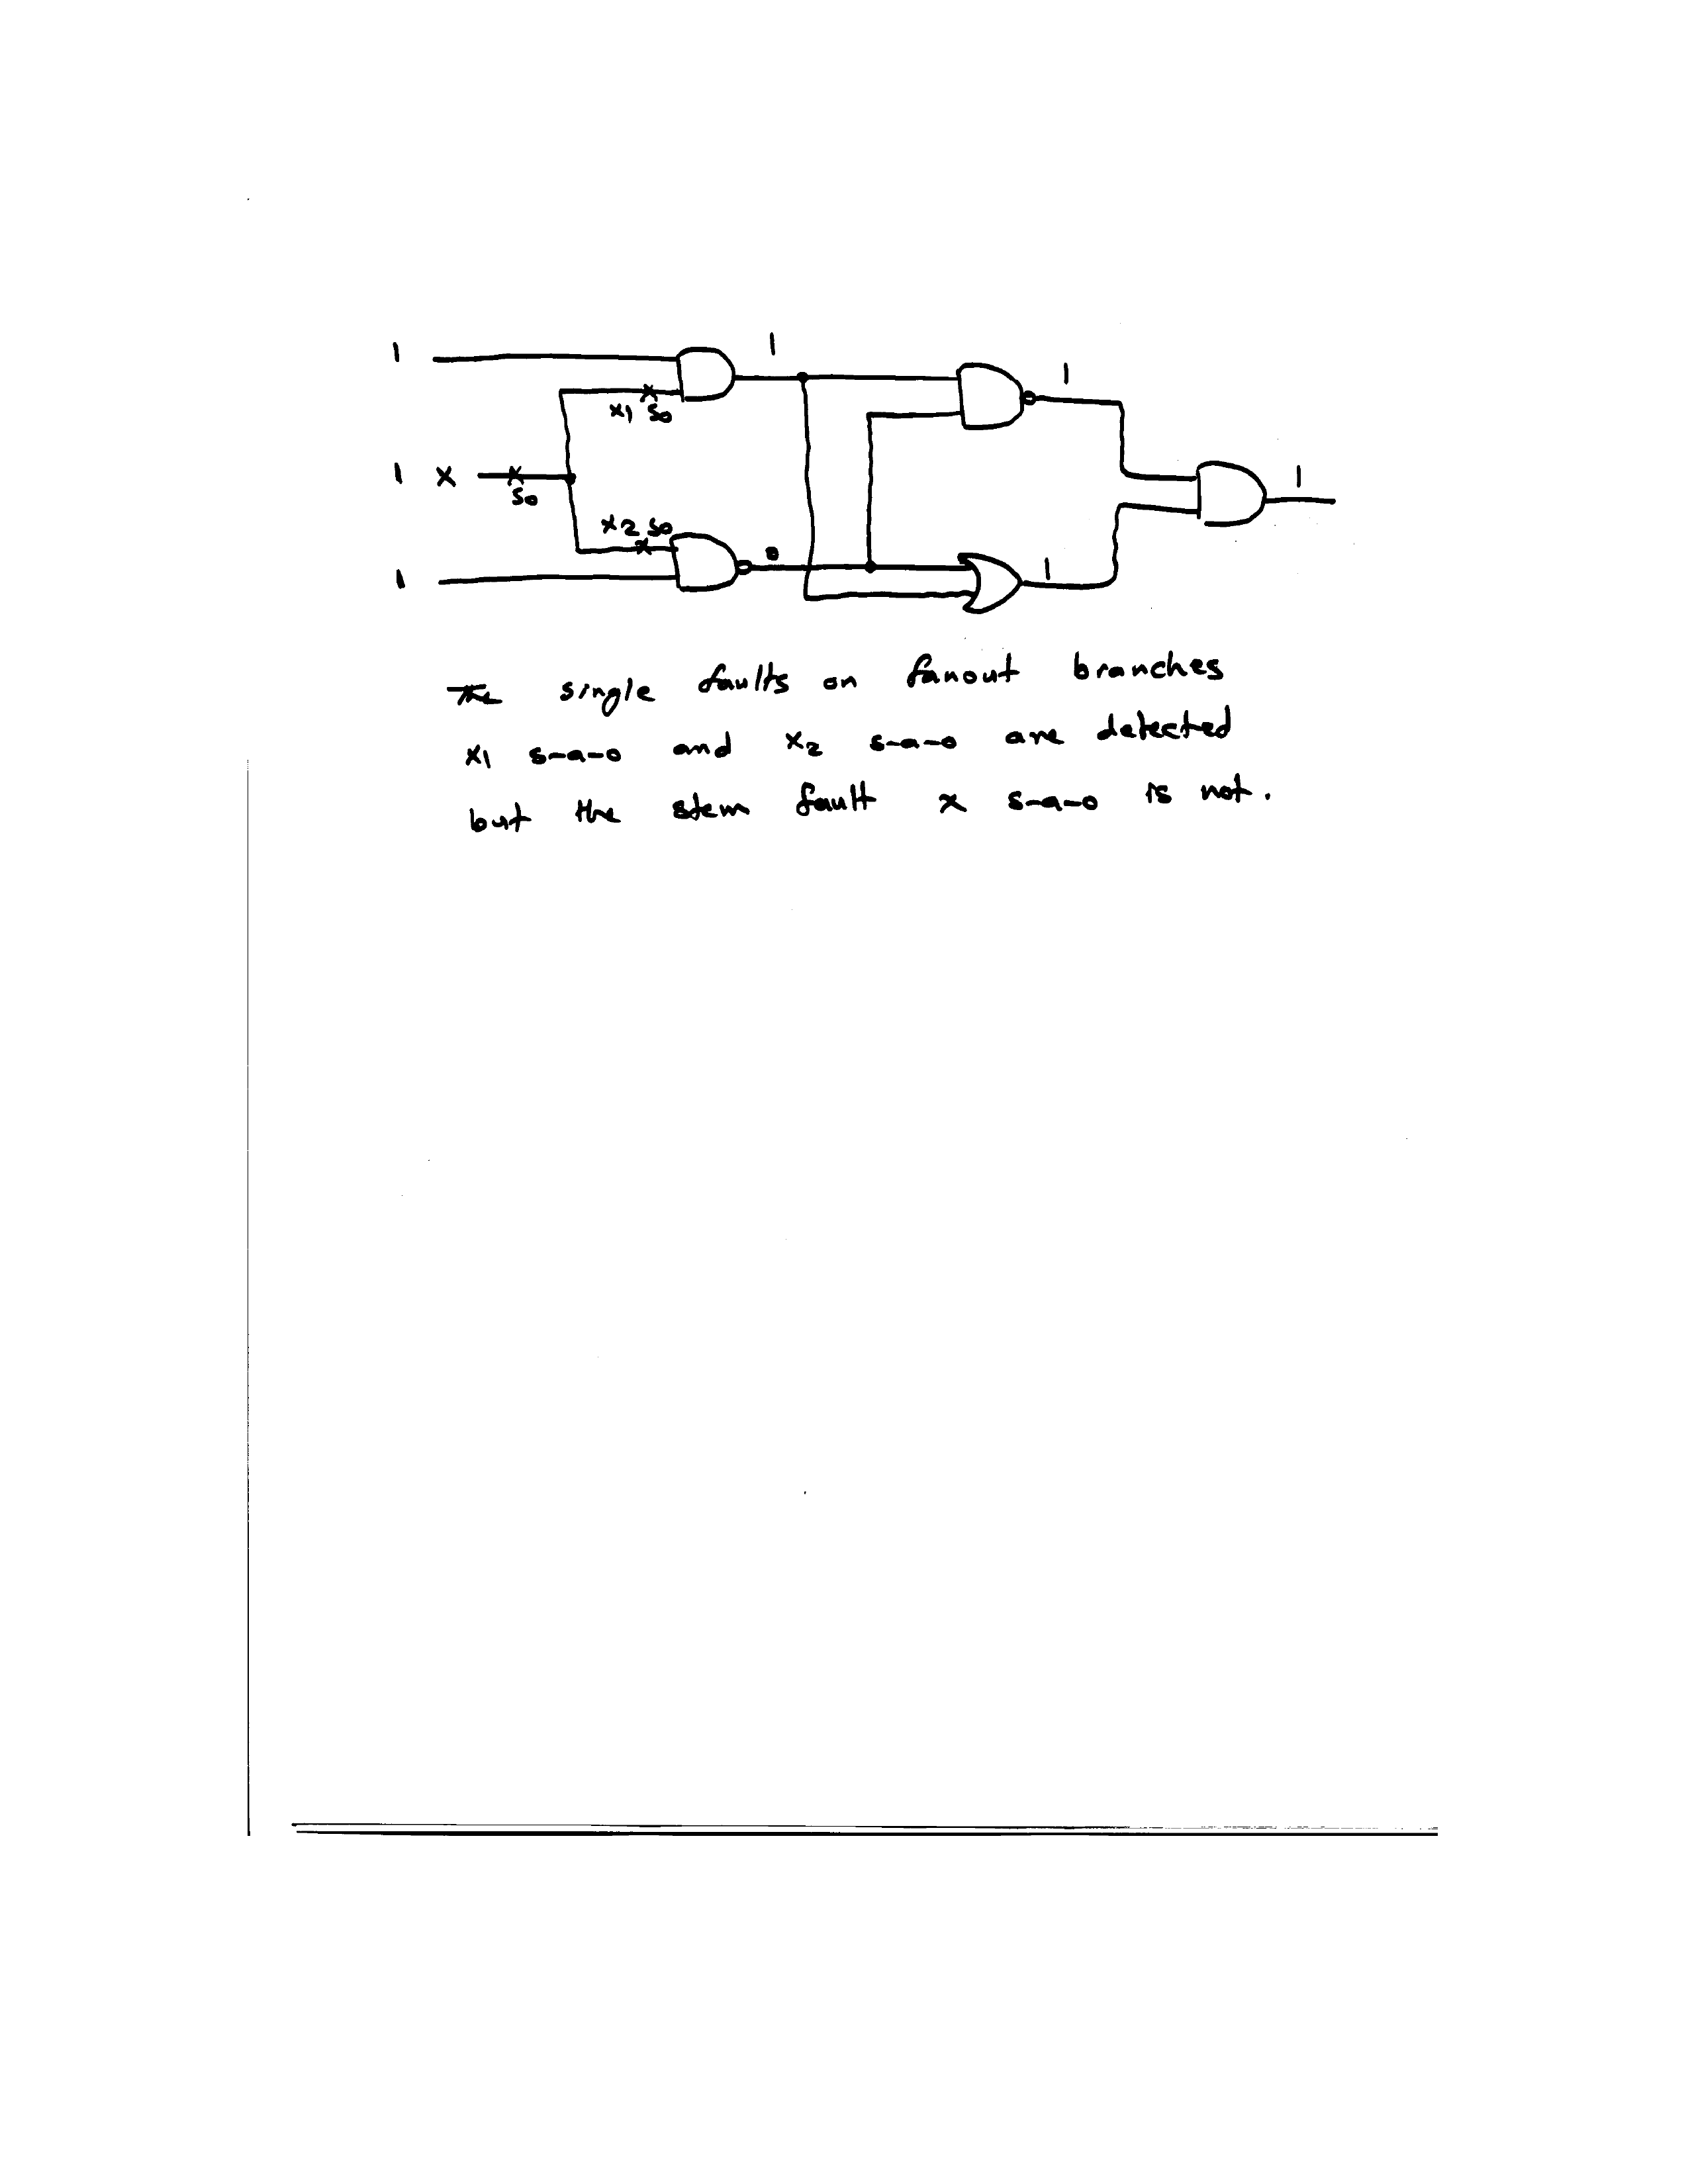 1
1
1
x1 s0
1 x
s0
1
x2 s0
0
1
1
The single faults on fanout branches
x1 s-a-0 and x2 s-a-0 are detected
but the stem fault x s-a-0 is not.